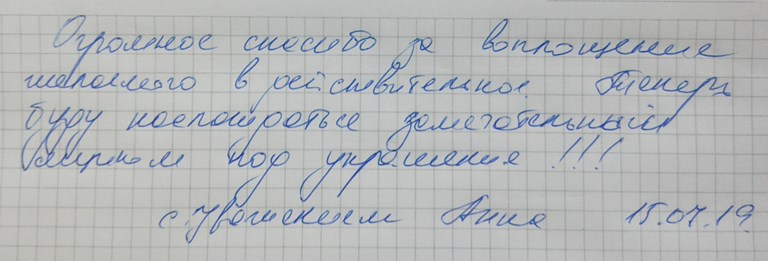 Огромное спасибо за воплощение
желаемого в действительное. Теперь
буду наслаждаться замечательным
ящиком под украшения!!!
с Уважением Анна 15.07.19